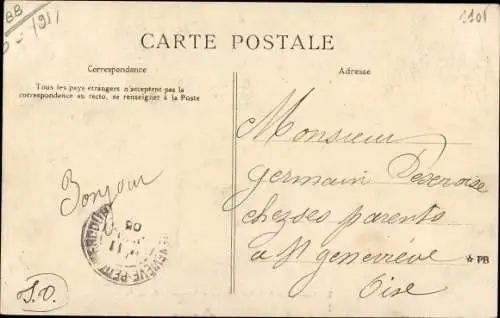 BB
1911
1101
CARTE POSTALE
Correspondance
Adresse
Tous les pays étrangers n'acceptent pas la
correspondance au recto, se renseigner à la Poste
Bonjour
J.O.
Monsieur
Germain
chez ses parents
a St geneviève
Oise
☆ PB